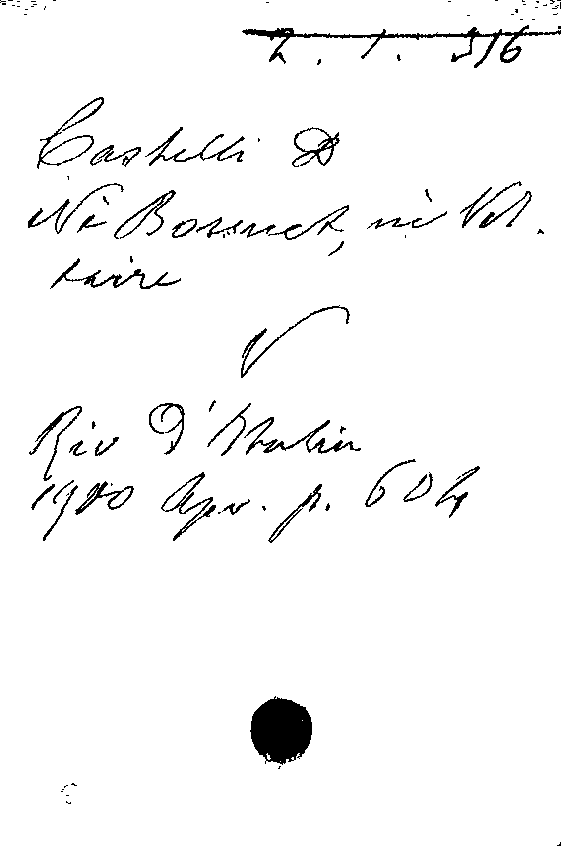 2. 1. 316
Castelli D
Nè Bossuet, nè Vol.
taire
V
Riv D'Italia
1900 Apr. p. 604